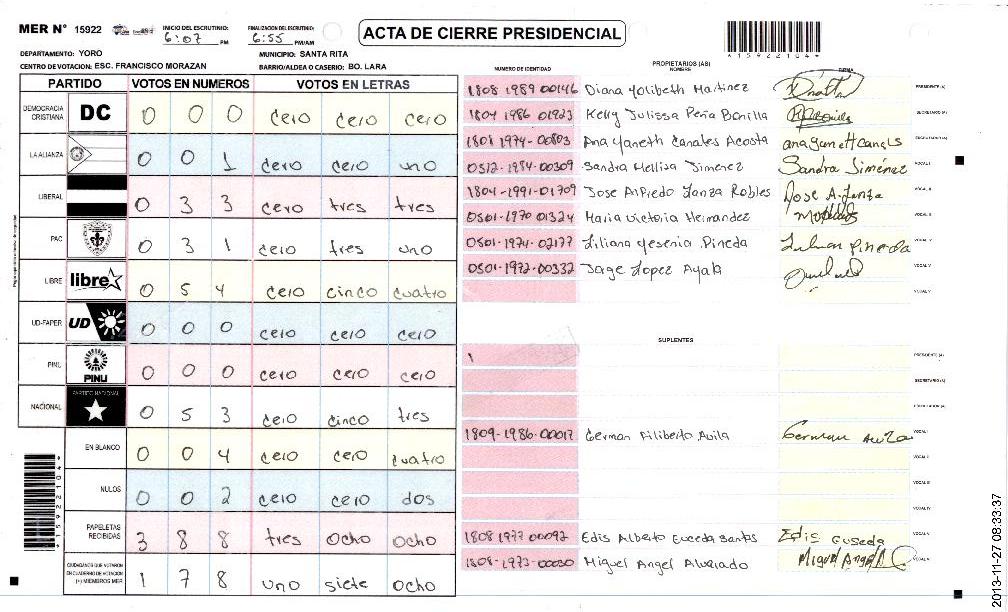 MER N° 15922
INICIO DEL ESCRUTINIO:
6:07 PM
FINALIZACION DEL ESCRUTINIO:
6:55 PM/AM
ACTA DE CIERRE PRESIDENCIAL
*15922104*
DEPARTAMENTO: YORO
MUNICIPIO: SANTA RITA
CENTRO DE VOTACION: ESC. FRANCISCO MORAZAN
BARRIO/ALDEA O CASERIO: BO. LARA
PARTIDO VOTOS EN NUMEROS VOTOS EN LETRAS
DEMOCRACIA CRISTIANA DC 0 0 0 cero cero cero
LA ALIANZA 0 0 1 cero cero uno
LIBERAL 0 3 3 cero tres tres
PAC 0 3 1 cero tres uno
LIBRE libre 0 5 4 cero cinco cuatro
UD-FAPER UD 0 0 0 cero cero cero
PINU PINU 0 0 0 cero cero cero
NACIONAL PARTIDO NACIONAL 0 5 3 cero cinco tres
EN BLANCO 0 0 4 cero cero cuatro
NULOS 0 0 2 cero cero dos
PAPELETAS RECIBIDAS 3 8 8 tres ocho ocho
CIUDADANOS QUE VOTARON EN CUADERNO DE VOTACION (+) MIEMBROS MER 1 7 8 uno siete ocho
*15922104*
PROPIETARIOS (AS)
NUMERO DE IDENTIDAD NOMBRE FIRMA
1808 1989 00146 Diana Yolibeth Martinez PRESIDENTE (A)
1804 1986 01923 Kelly Julissa Peña Bonilla SECRETARIO (A)
1801 1974-00803 Ana Yaneth Canales Acosta
0512-1984-00309 Sandra Mellisa Jimenez Sandra Jiménez VOCAL I
1804-1991-01709 Jose Alfredo Lanza Robles
0501-1970 01324 Maria Victoria Hernandez
0501-1974-02177 Liliana Yesenia Pineda
0501-1972-00332 Jorge Lopez Ayala
SUPLENTES
PRESIDENTE (A)
SECRETARIO (A)
1809-1986-00017 German Filiberto Avila German Avila VOCAL I
1808 1977 00092 Edis Alberto Euceda Santos Edis Euceda
1808-1973-00030 Miguel Angel Alvarado Miguel Angel A.
2013-11-27 08:33:37